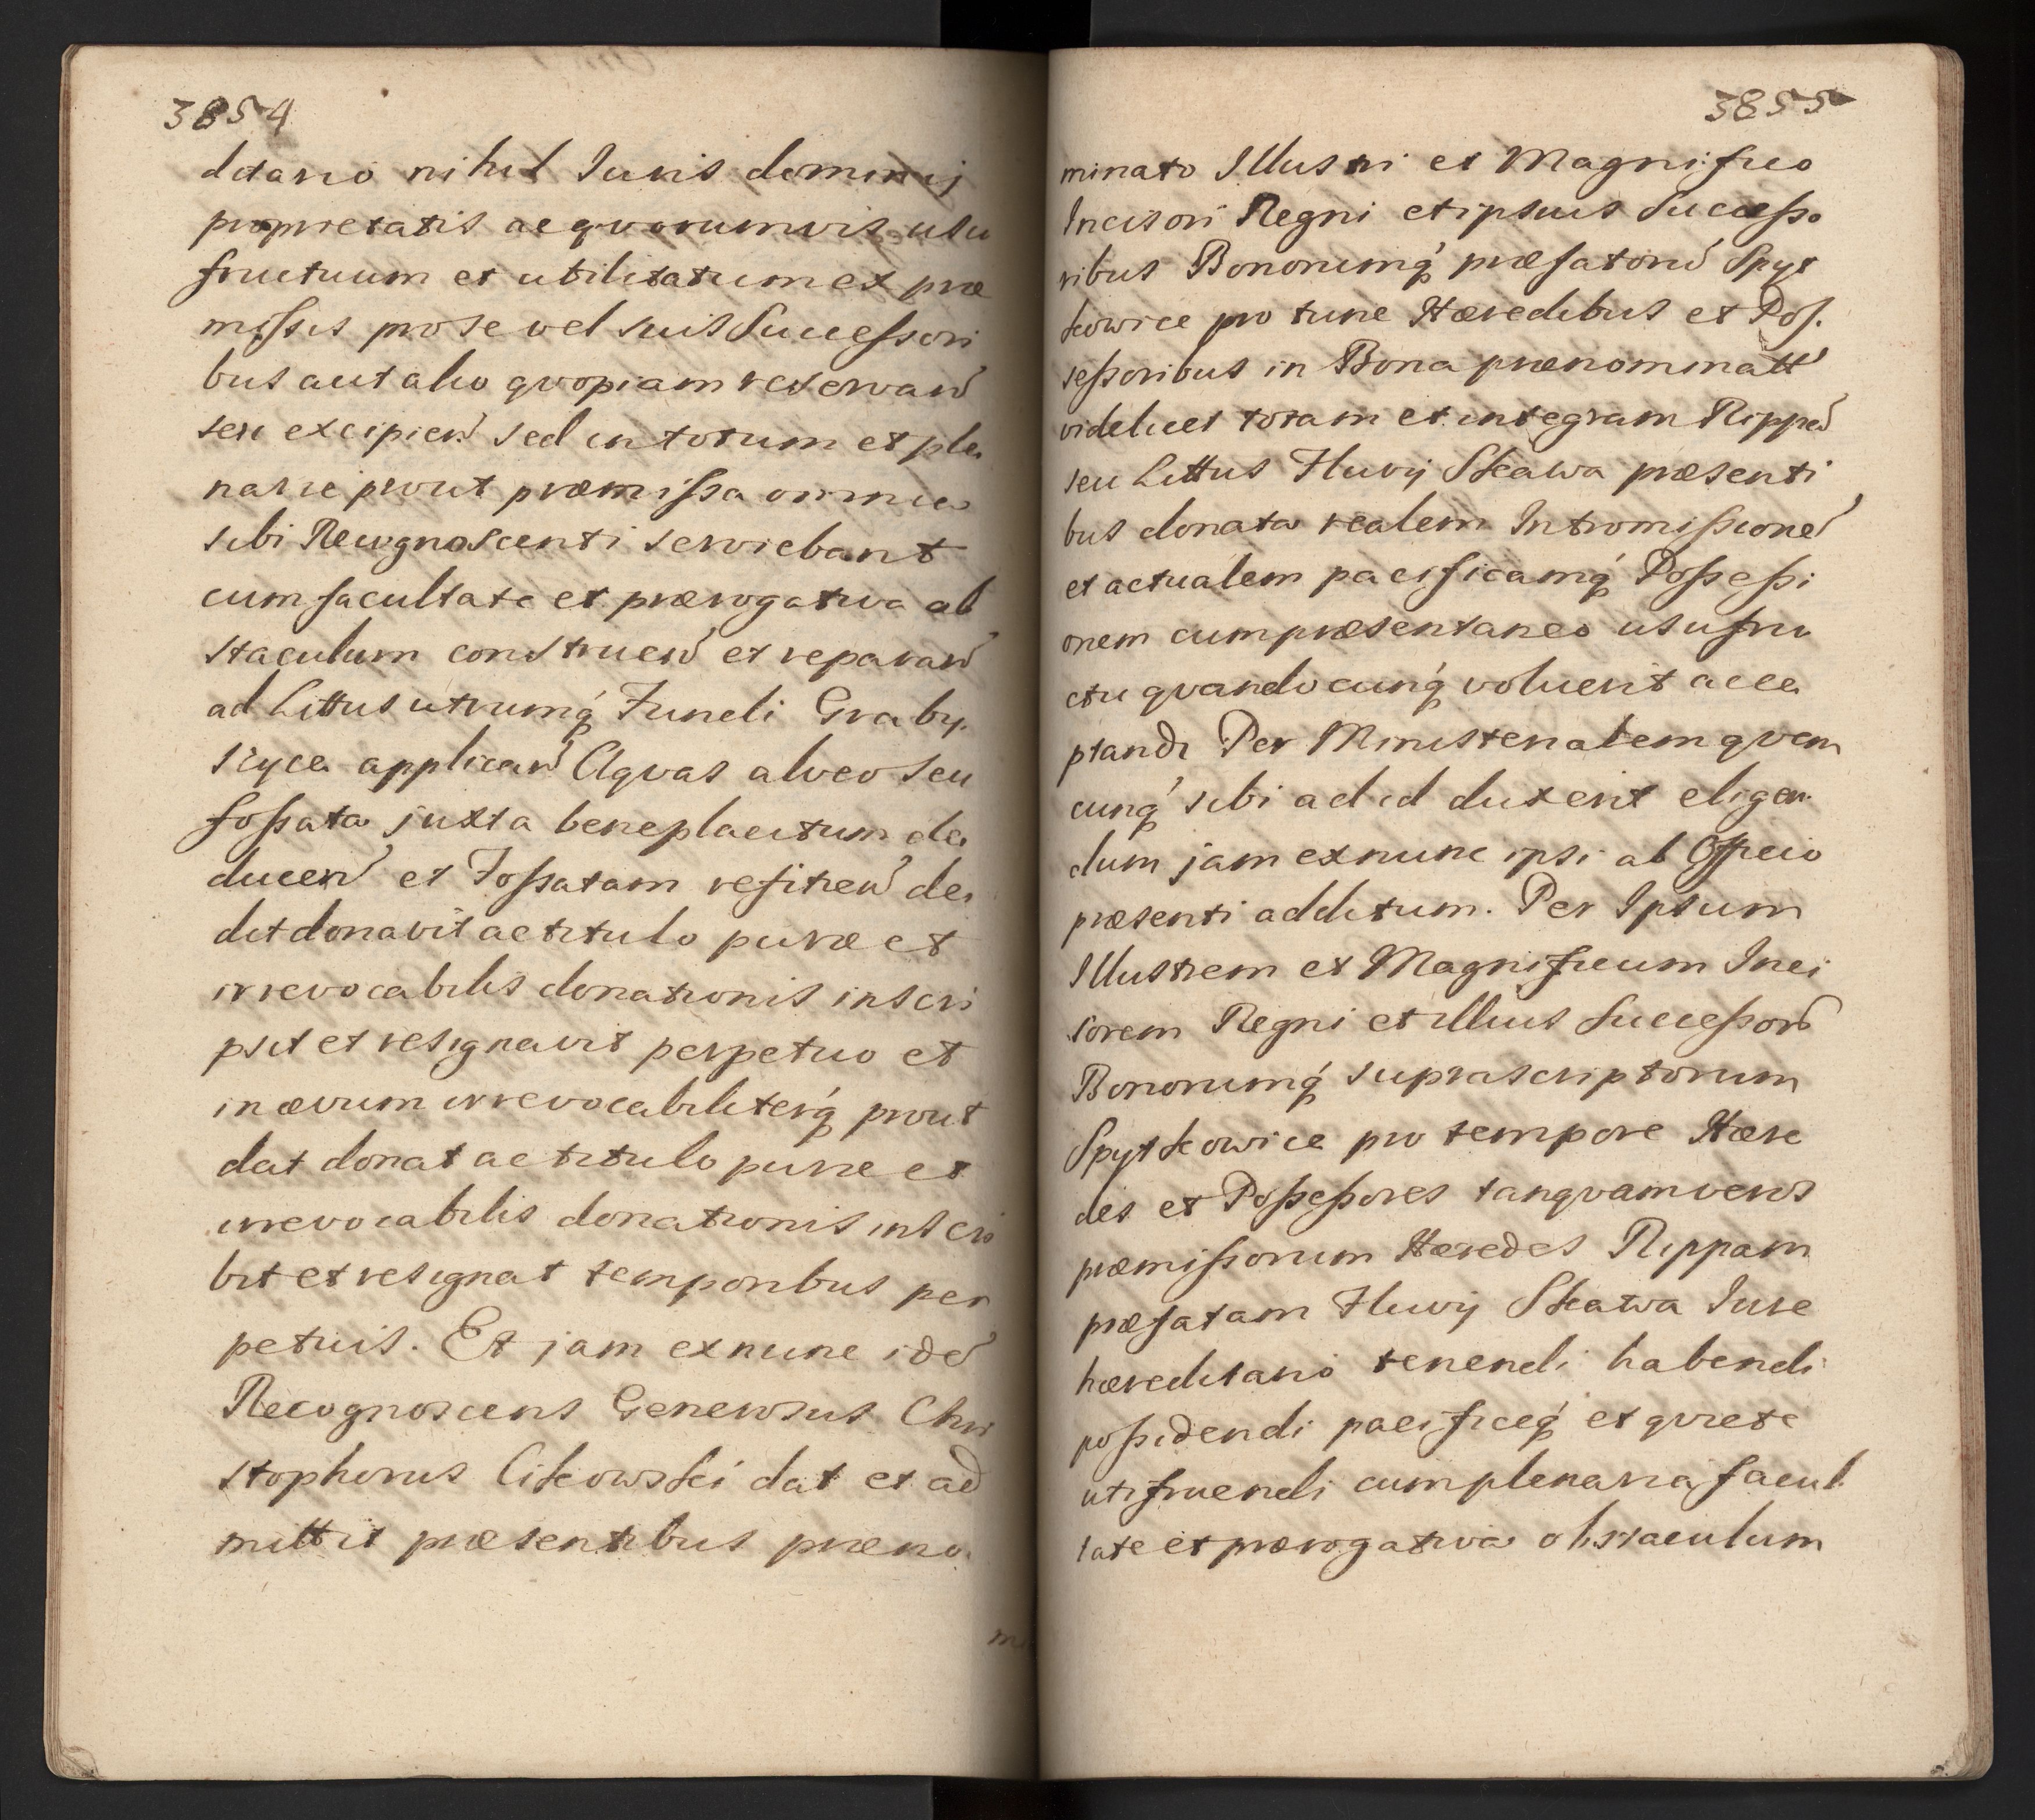 3854
ditario nihil Iuris dominij
proprietatis ac qvorumvis usu
fructuum et utilitatum ex præ
missis pro se vel suis Successori
bus aut alio qvopiam reservan͠d
seu excipien͠d sed in totum et ple
narie prout præmissa omnia
sibi Recognoscenti serviebant
cum facultate et prærogativa ob
staculum construen͠d et reparan͠d
ad Littus utrumq́ Fundi Graby.
szyce applican͠d Aqvas alveo seu
fossata juxta beneplacitum de
ducen͠d et Fossatam reficien͠d de
dit donavit ac titulo puræ et
irrevocabilis donationis inscri
psit et resignavit perpetuo et
in ævum irrevocabiliterq́ prout
dat donat ac titulo puræ et
irrevocabilis donationis inscri
bit et resignat temporibus per
petuis. Et jam ex nunc ide͠
Recognoscens Generosus Chri
stophorus Cikowski dat et ad
mittit præsentibus præno.
mi
3855
minato Illustri et Magnifico
Incisori Regni et ipsius Successo
ribus Bonorumq́ præfator͠u Spyt
kowice pro tunc Hæredibus et Pos.
sessoribus in Bona prænominatt͠
videlicet totam et integram Rippa͠
seu Littus Fluvij Skawa præsenti
bus donata realem Intromissione͠
et actualem pacificamq́ Possessi
onem cum præsentaneo usufru
ctu qvandocunq́ voluerit acce
ptandi Per Ministerialem qvem
cunq́ sibi ad id duxerit eligen
dum jam ex nunc ipsi ab Officio
præsenti additum. Per Ipsum
Illustrem et Magnificum Inci
sorem Regni et illius Successor͠
Bonorumq́ suprascriptorum
Spytkowice pro tempore Hære
des et Possessores tanqvam veros
præmissorum Hæredes Rippam
præfatam Fluvij Skawa Iure
hæreditario tenendi habendi
possidendi pacificeq́ et qviete
utifruendi cum plenaria facul
tate et prærogativa obstaculum